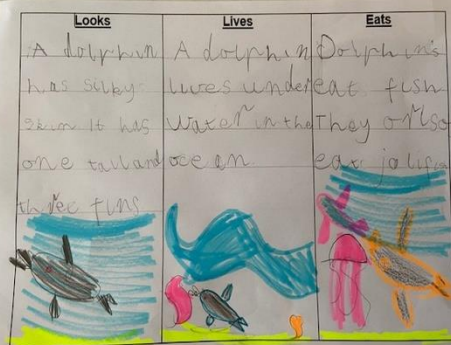 Looks
A dolphin
has silky
skin. It has
one tail and
three fins
Lives
A dolphin
lives under
water in the
ocean.
Eats
Dolphin's
eat fish
They orlso
eat jalifish